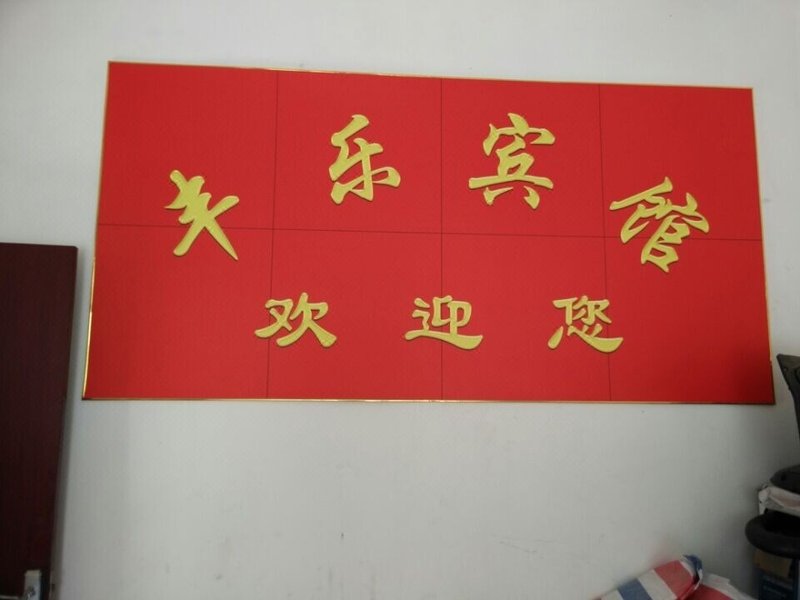 长乐宾馆
欢迎您